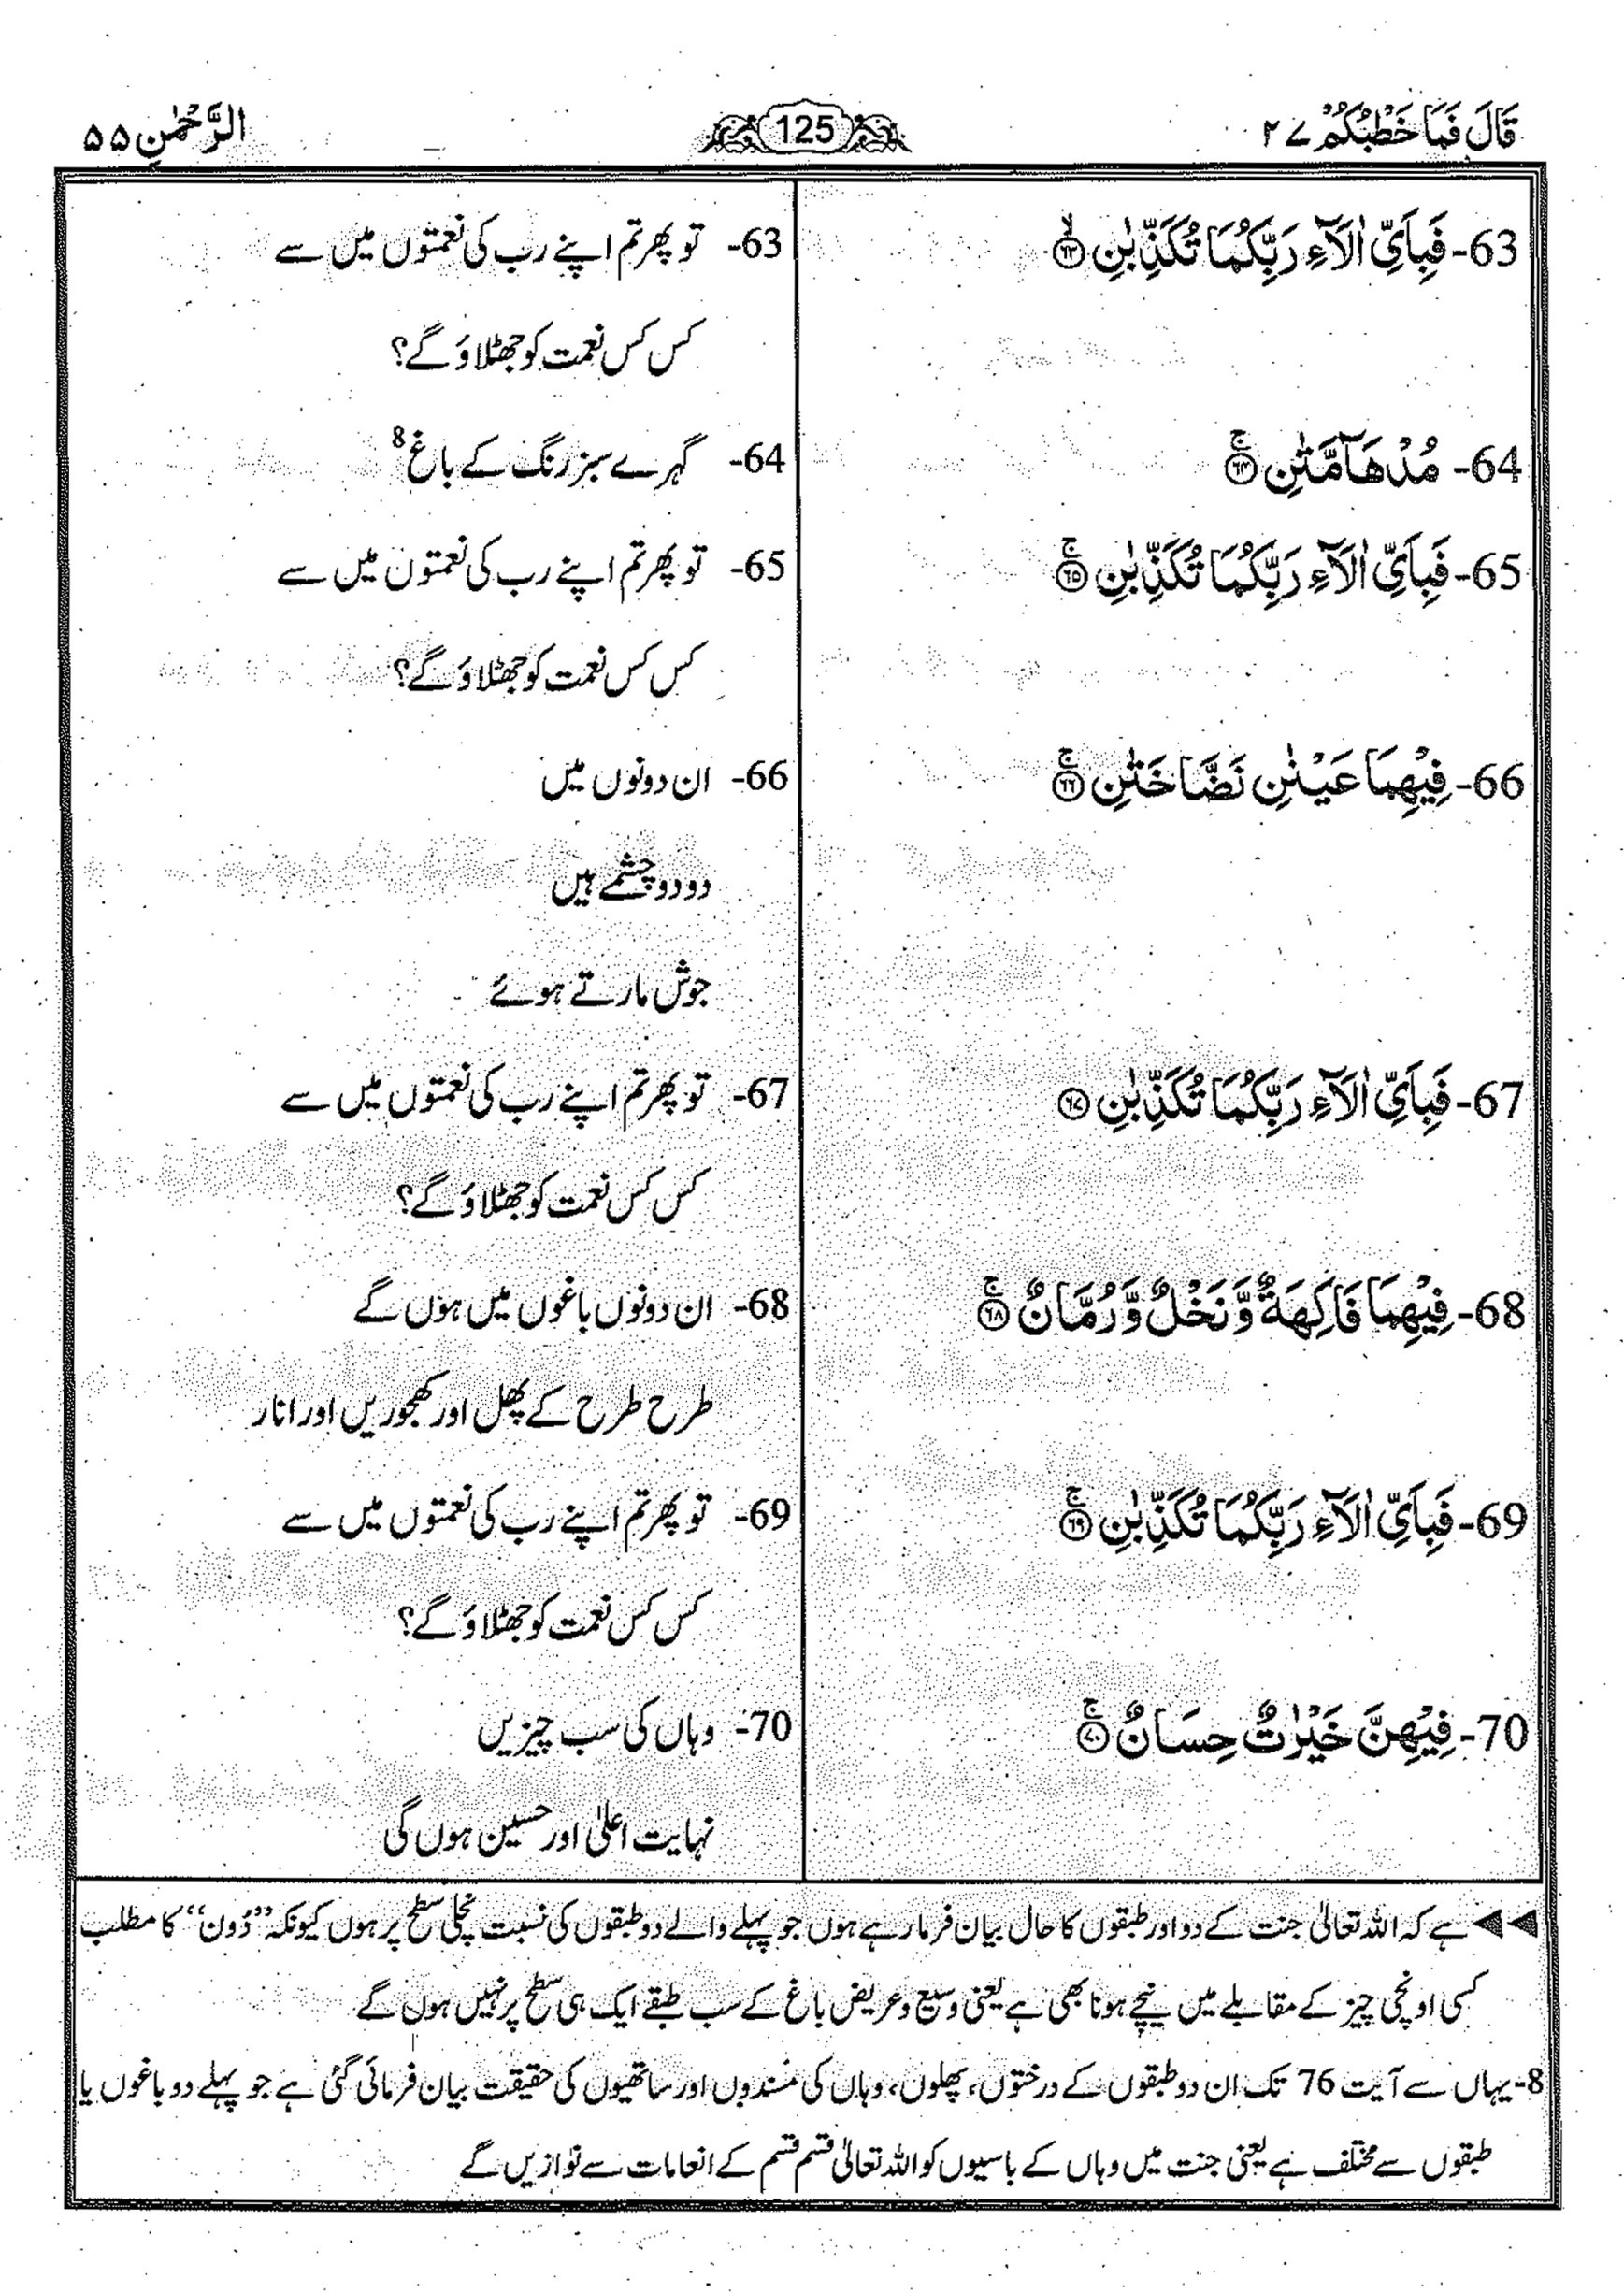 قَالَ فَمَا خَطْبُكُمْ ۲۷
125
الرَّحْمٰنِ ۵۵
63- فَبِاَيِّ اٰلَآءِ رَبِّكُمَا تُكَذِّبٰنِ ۙ﴿۶۳﴾
63- تو پھر تم اپنے رب کی نعمتوں میں سے
کس کس نعمت کو جھٹلاؤ گے؟
64- مُدْهَآمَّتٰنِ ۚ﴿۶۴﴾
64- گہرے سبز رنگ کے باغ 8
65- فَبِاَيِّ اٰلَآءِ رَبِّكُمَا تُكَذِّبٰنِ ۚ﴿۶۵﴾
65- تو پھر تم اپنے رب کی نعمتوں میں سے
کس کس نعمت کو جھٹلاؤ گے؟
66- فِيْهِمَا عَيْنٰنِ نَضَّاخَتٰنِ ۚ﴿۶۶﴾
66- ان دونوں میں
دو دو چشمے ہیں
جوش مارتے ہوئے
67- فَبِاَيِّ اٰلَآءِ رَبِّكُمَا تُكَذِّبٰنِ ﴿۶۷﴾
67- تو پھر تم اپنے رب کی نعمتوں میں سے
کس کس نعمت کو جھٹلاؤ گے؟
68- فِيْهِمَا فَاكِهَةٌ وَّنَخْلٌ وَّرُمَّانٌ ۚ﴿۶۸﴾
68- ان دونوں باغوں میں ہوں گے
طرح طرح کے پھل اور کھجوریں اور انار
69- فَبِاَيِّ اٰلَآءِ رَبِّكُمَا تُكَذِّبٰنِ ۚ﴿۶۹﴾
69- تو پھر تم اپنے رب کی نعمتوں میں سے
کس کس نعمت کو جھٹلاؤ گے؟
70- فِيْهِنَّ خَيْرٰتٌ حِسَانٌ ۚ﴿۷۰﴾
70- وہاں کی سب چیزیں
نہایت اعلیٰ اور حسین ہوں گی
◀◀ ہے کہ اللہ تعالیٰ جنت کے دو اور طبقوں کا حال بیان فرما رہے ہوں جو پہلے والے دو طبقوں کی نسبت نچلی سطح پر ہوں کیونکہ ”دُون“ کا مطلب
کسی اونچی چیز کے مقابلے میں نیچے ہونا بھی ہے یعنی وسیع و عریض باغ کے سب طبقے ایک ہی سطح پر نہیں ہوں گے
8- یہاں سے آیت 76 تک ان دو طبقوں کے درختوں، پھلوں، وہاں کی مسندوں اور ساتھیوں کی حقیقت بیان فرمائی گئی ہے جو پہلے دو باغوں یا
طبقوں سے مختلف ہے یعنی جنت میں وہاں کے باسیوں کو اللہ تعالیٰ قسم قسم کے انعامات سے نوازیں گے